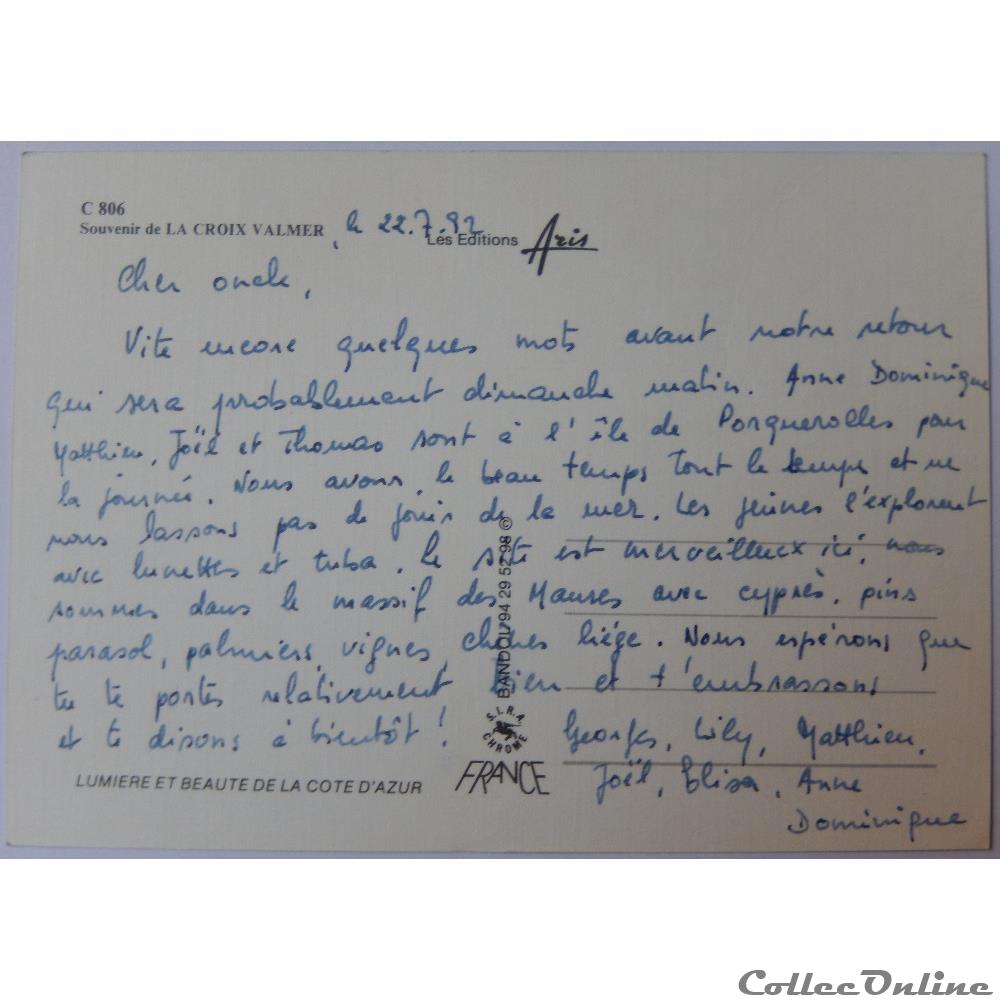 C 806
Souvenir de LA CROIX VALMER, le 22.7.92
Les Editions Aris
Cher oncle,
Vite encore quelques mots avant notre retour
qui sera probablement dimanche matin. Anne Dominique
Matthieu, Joël et Thomas sont à l'île de Porquerolles pour
la journée. Nous avons le beau temps tout le temps et ne
nous lassons pas de jouir de la mer. Les jeunes l'explorent
avec lunettes et tuba. Le site est merveilleux ici, nous
sommes dans le massif des Maures avec cyprès, pins
parasol, palmiers, vignes, chênes liège. Nous espérons que
tu te portes relativement bien et t'embrassons
et te disons à bientôt !
Georges, Lily, Matthieu,
Joël, Elisa, Anne
Dominique
BANDOL 94 29 52 98 ©
S.I.R.A. CHROME
FRANCE
LUMIERE ET BEAUTE DE LA COTE D'AZUR
CollecOnline